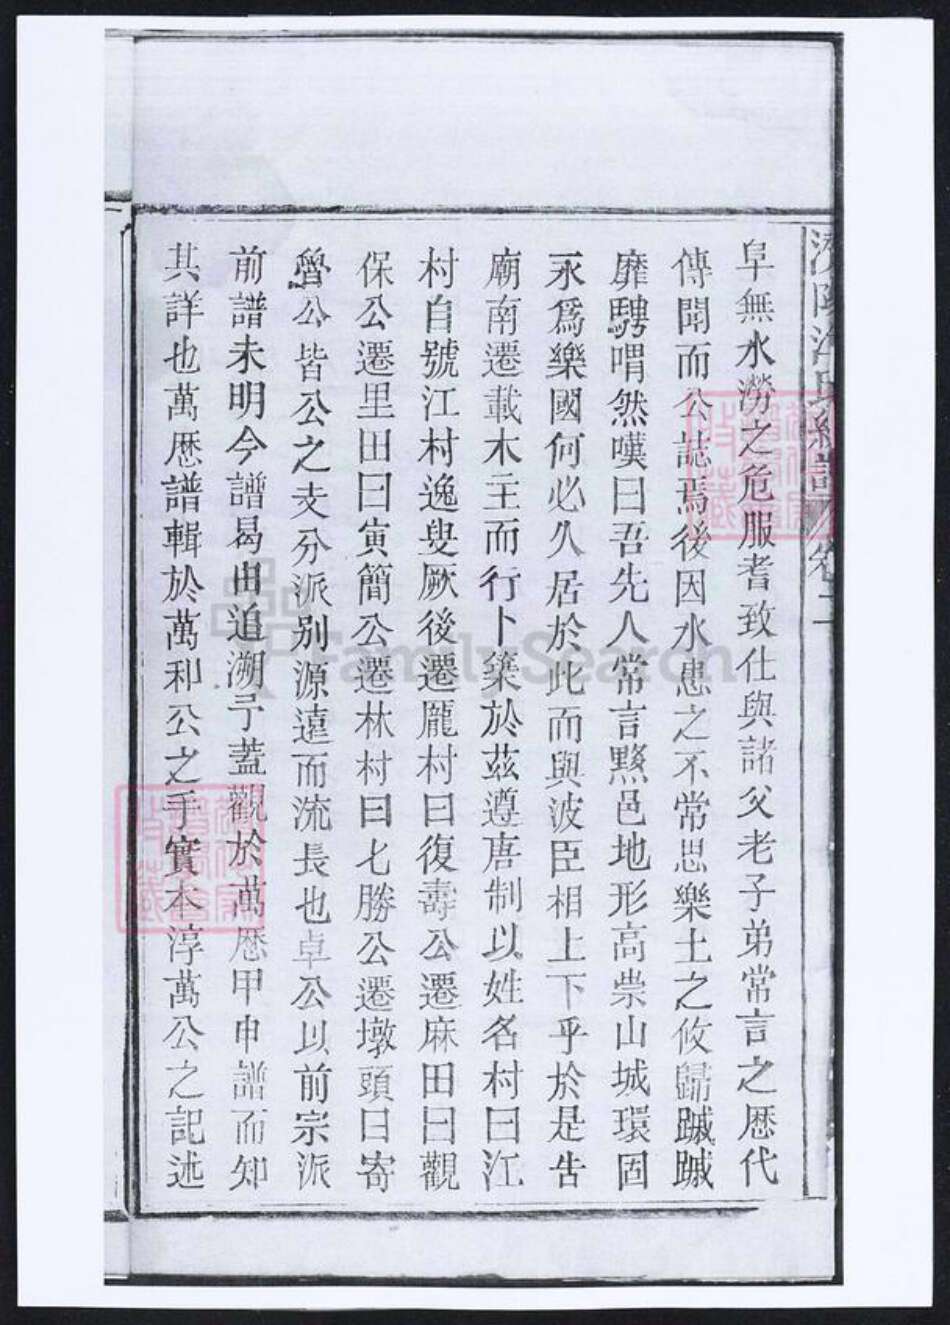 濟陽江氏統譜 卷二
阜無水澇之危服耆致仕與諸父老子弟常言之歷代
傳聞而公誌焉後因水患之不常思樂土之攸歸蹴蹴
靡騁喟然嘆曰吾先人常言黟邑地形高祟山城環固
永爲樂國何必久居於此而與波臣相上下乎於是告
廟南遷載木主而行卜築於茲遵唐制以姓名村曰江
村自號江村逸叟厥後遷龐村曰復壽公遷麻田曰觀
保公遷里田曰寅簡公遷林村曰七勝公遷墩頭曰寄
魯公皆公之支分派别源遠而流長也卓公以前宗派
前譜未明今譜曷由追溯予蓋觀於萬厯甲申譜而知
其詳也萬厯譜輯於萬和公之手實本淳萬公之記述
FamilySearch